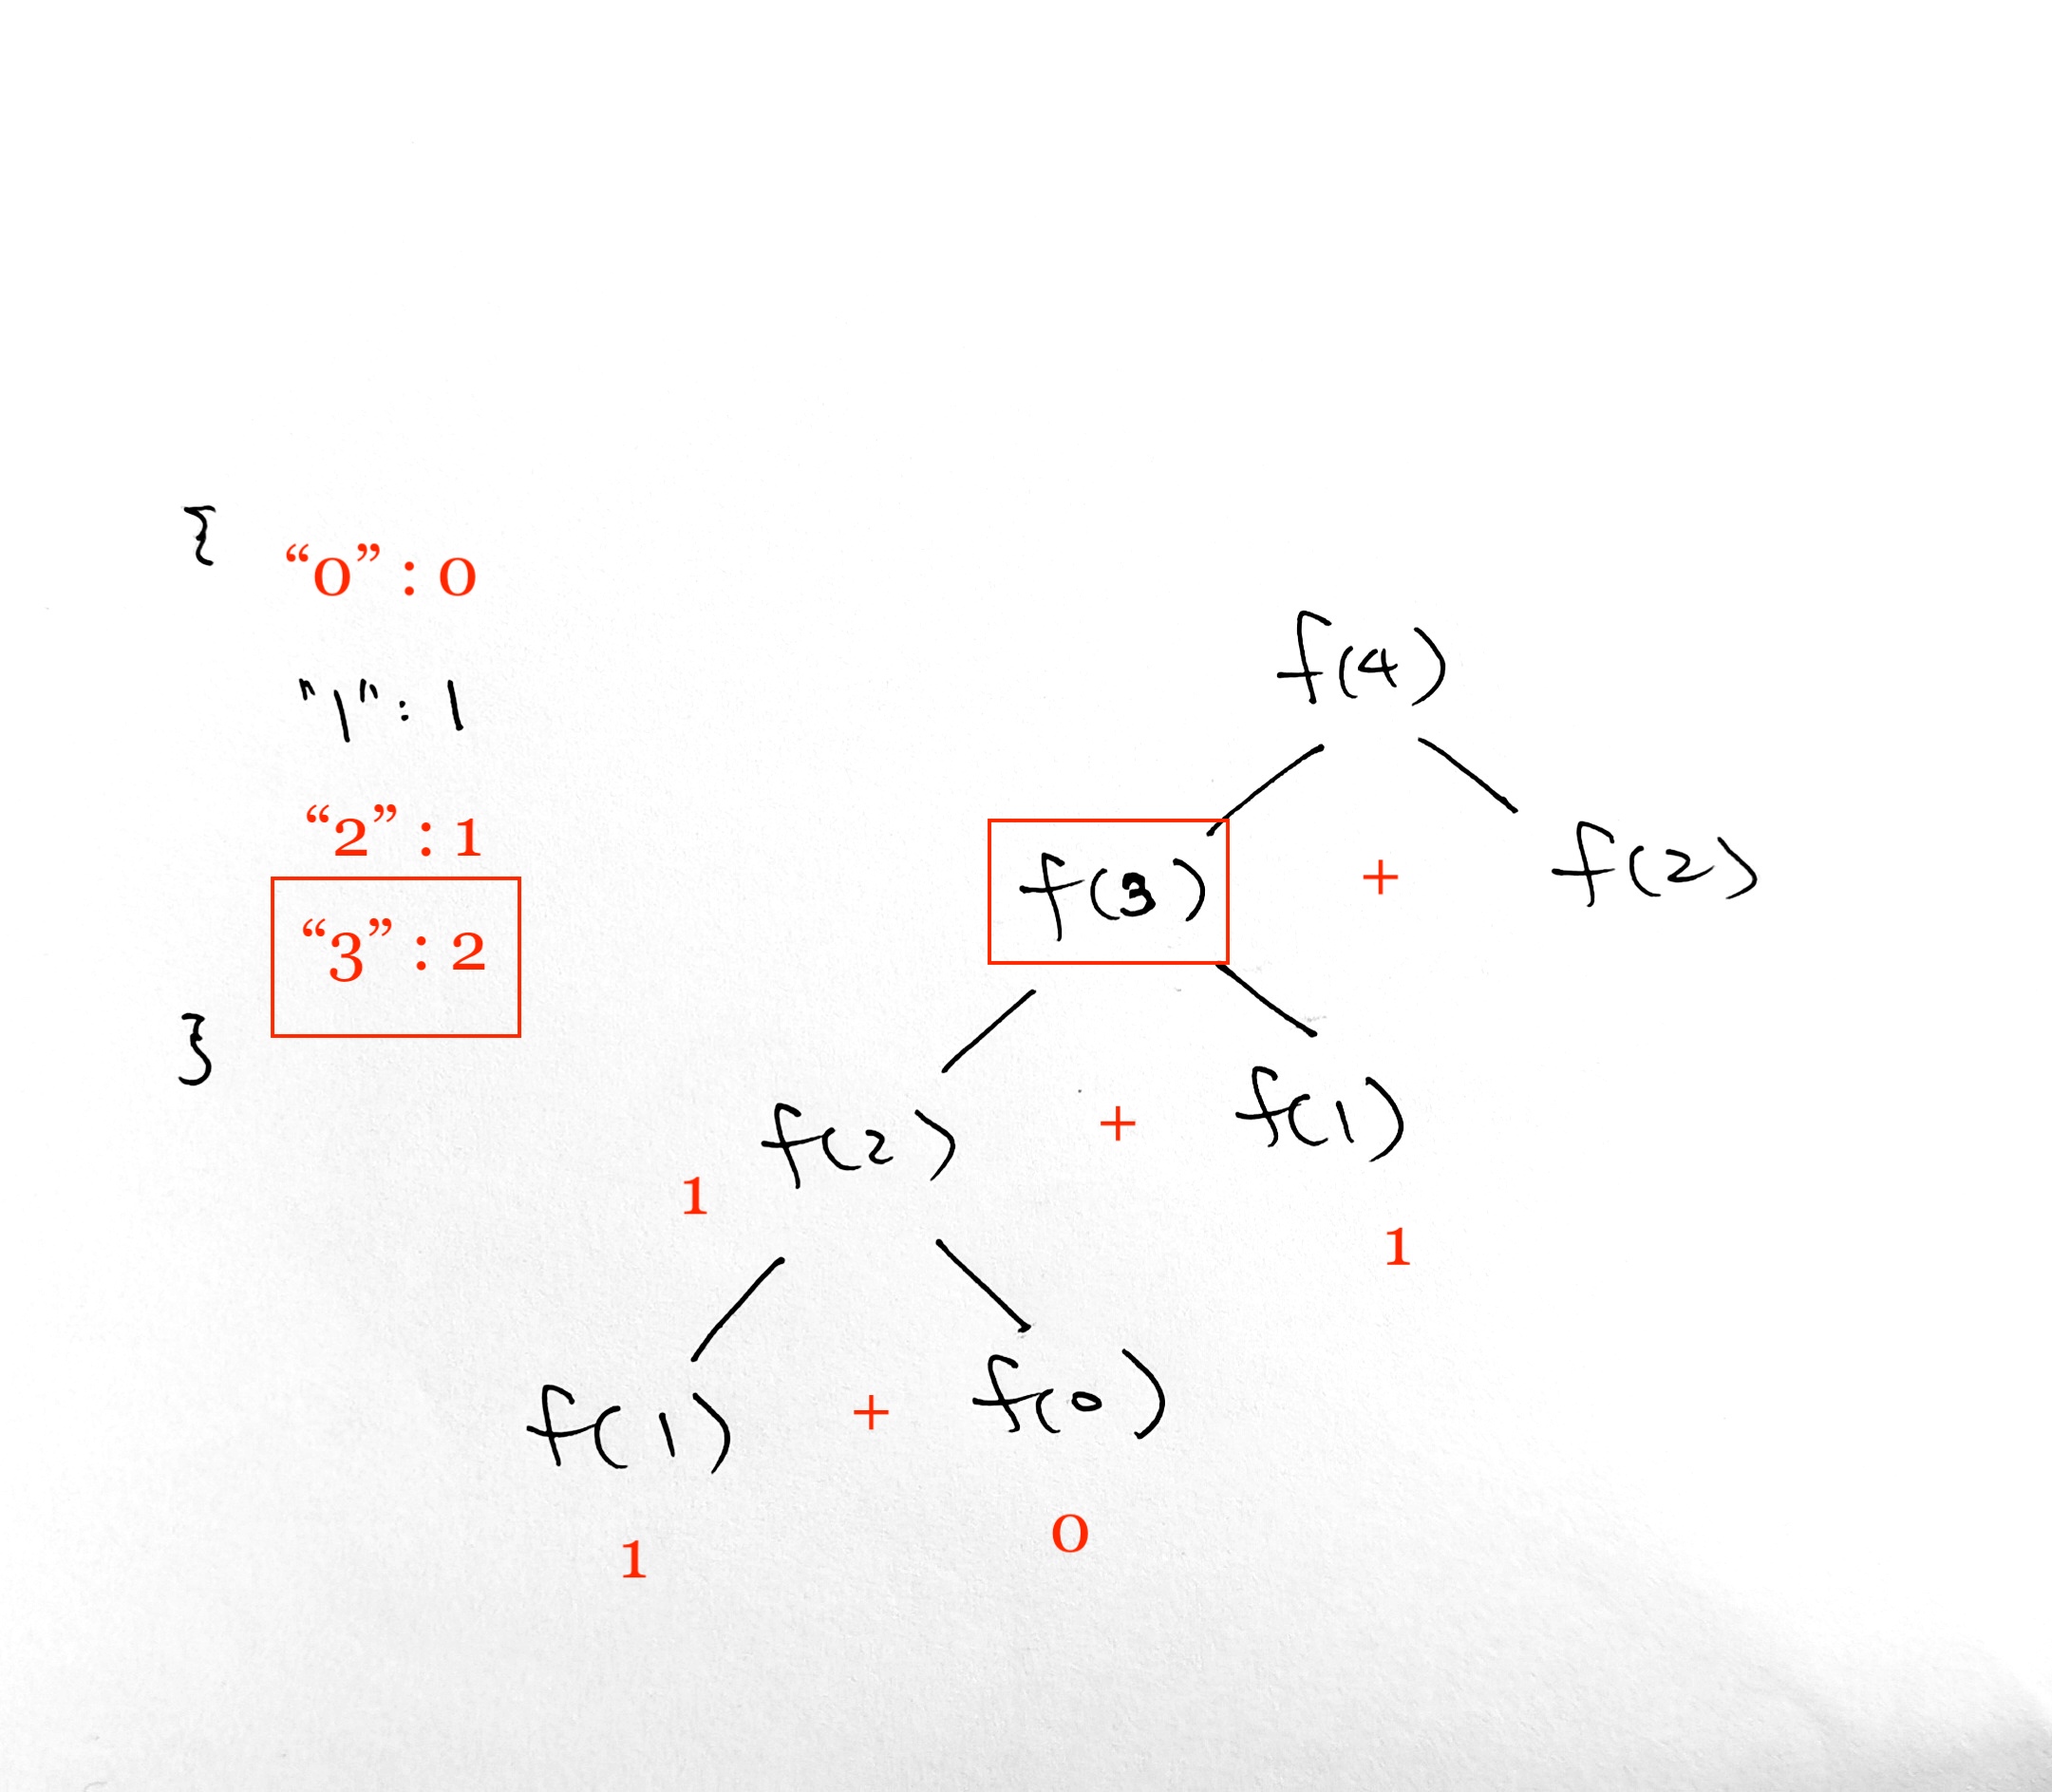 {
“0” : 0
"1" : 1
“2” : 1
“3” : 2
}
f(4)
f(3) + f(2)
f(2) + f(1)
1
1
f(1) + f(0)
1
0